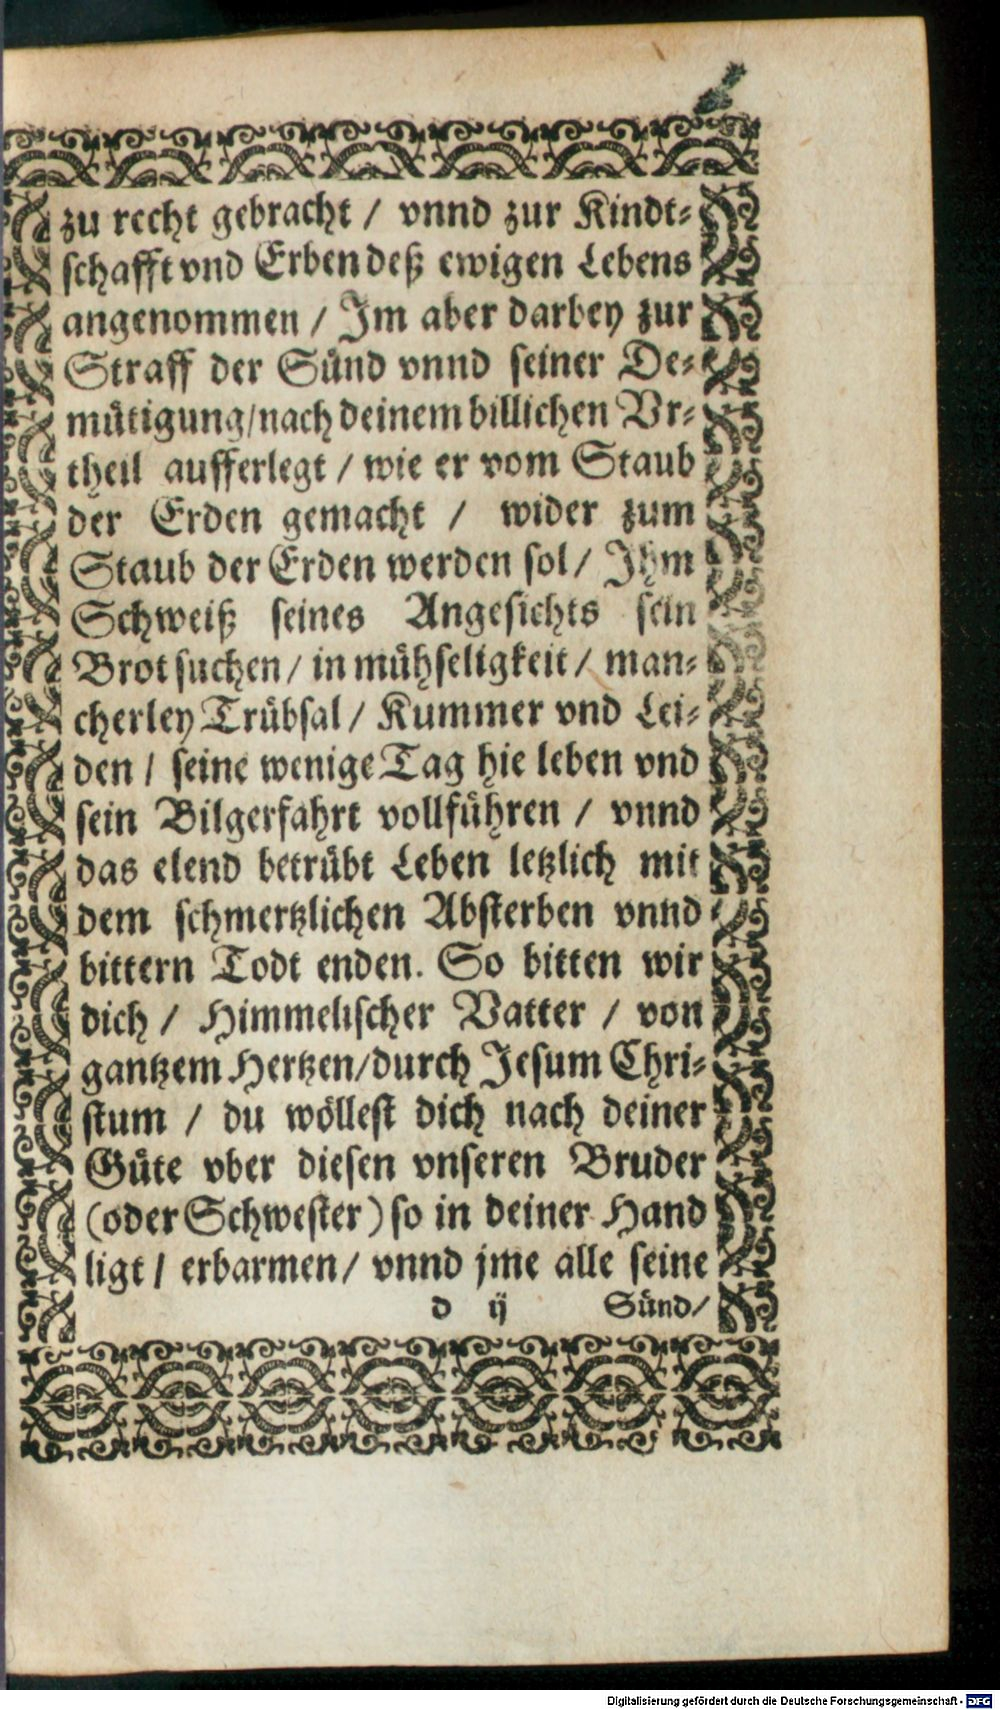 zu recht gebracht / vnnd zur Kindt⸗
schafft vnd Erben deß ewigen Lebens
angenommen / Im aber darbey zur
Straff der Sünd vnnd seiner De⸗
mütigung/nach deinem billichen Vr⸗
theil aufferlegt / wie er vom Staub
der Erden gemacht / wider zum
Staub der Erden werden sol / Ihm
Schweiß seines Angesichts sein
Brot suchen / in mühseligkeit / man⸗
cherley Trübsal / Kummer vnd Lei⸗
den / seine wenige Tag hie leben vnd
sein Bilgerfahrt vollführen / vnnd
das elend betrübt Leben letzlich mit
dem schmertzlichen Absterben vnnd
bittern Todt enden. So bitten wir
dich / Himmelischer Vatter / von
gantzem Hertzen/durch Jesum Chri⸗
stum / du wöllest dich nach deiner
Güte vber diesen vnseren Bruder
(oder Schwester) so in deiner Hand
ligt / erbarmen / vnnd jme alle seine
d ij Sünd/
Digitalisierung gefördert durch die Deutsche Forschungsgemeinschaft - DFG